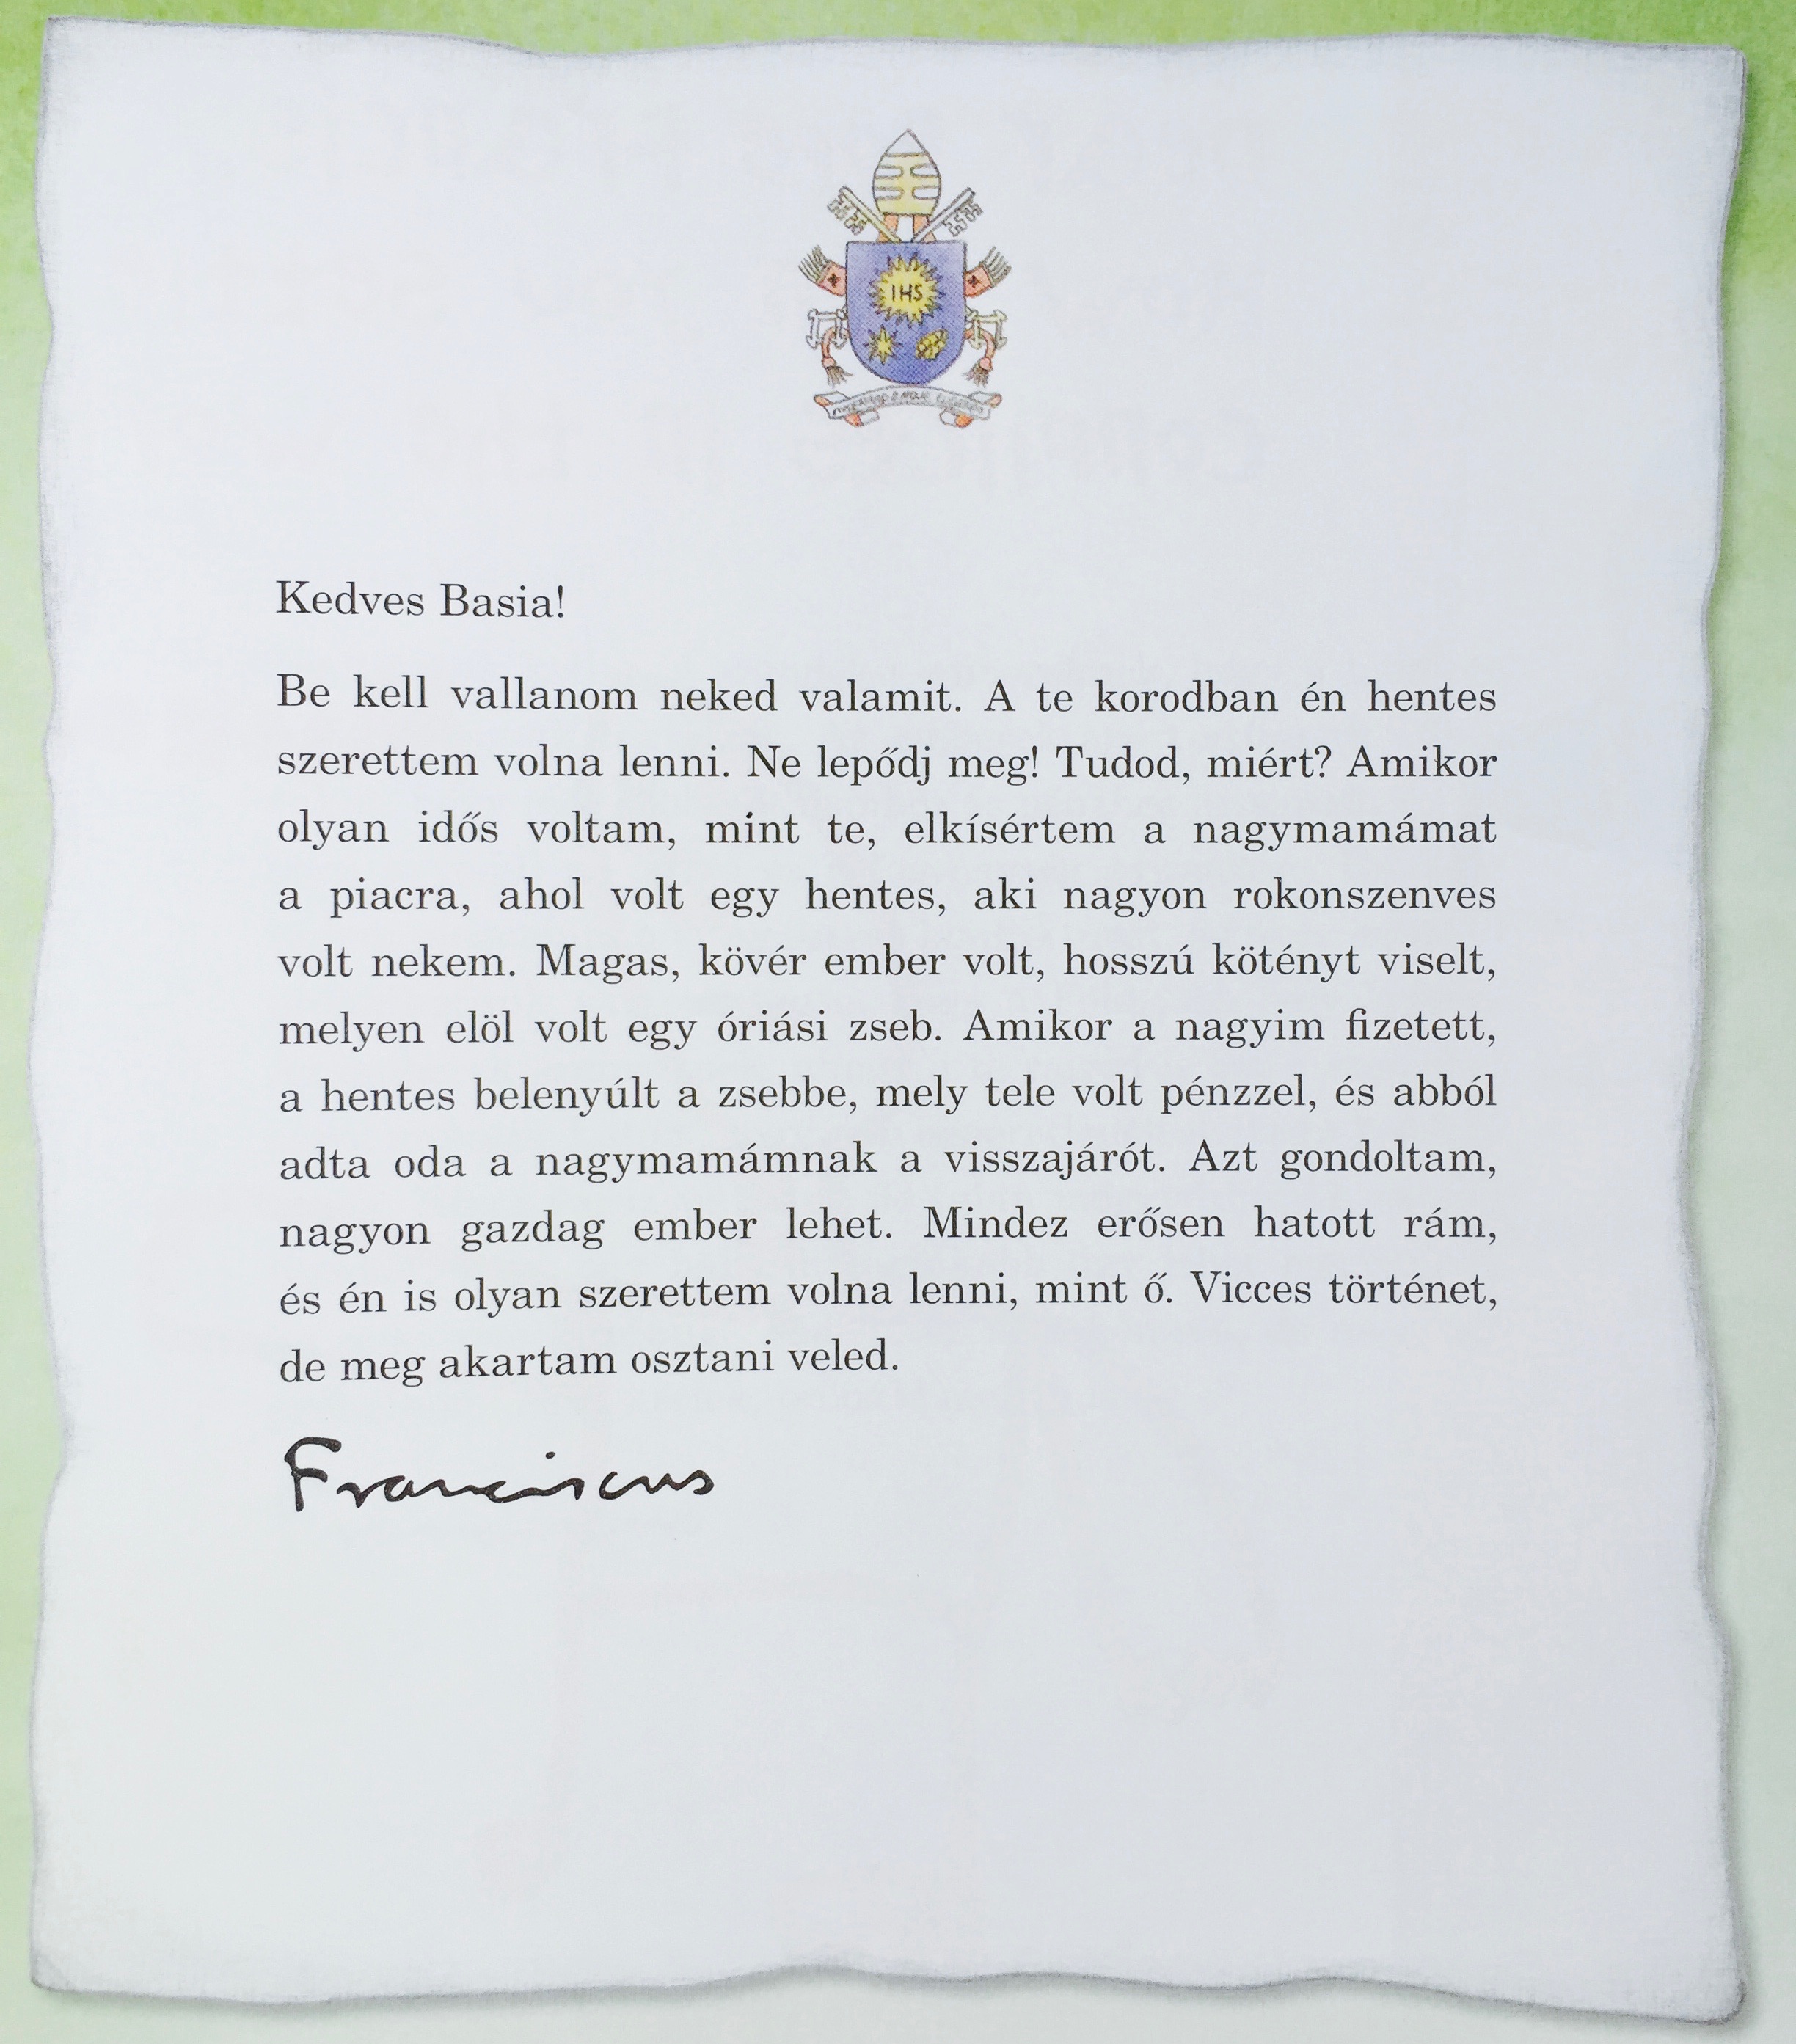 IHS
Kedves Basia!
Be kell vallanom neked valamit. A te korodban én hentes
szerettem volna lenni. Ne lepődj meg! Tudod, miért? Amikor
olyan idős voltam, mint te, elkísértem a nagymamámat
a piacra, ahol volt egy hentes, aki nagyon rokonszenves
volt nekem. Magas, kövér ember volt, hosszú kötényt viselt,
melyen elöl volt egy óriási zseb. Amikor a nagyim fizetett,
a hentes belenyúlt a zsebbe, mely tele volt pénzzel, és abból
adta oda a nagymamámnak a visszajárót. Azt gondoltam,
nagyon gazdag ember lehet. Mindez erősen hatott rám,
és én is olyan szerettem volna lenni, mint ő. Vicces történet,
de meg akartam osztani veled.
Franciscus